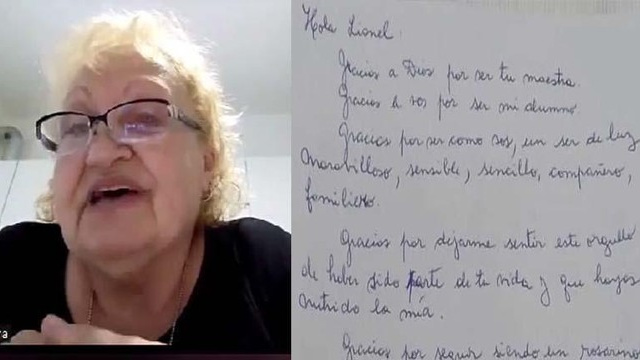 Hola Lionel:
Gracias a Dios por ser tu maestra.
Gracias a vos por ser mi alumno.
Gracias por ser como sos, un ser de luz
maravilloso, sensible, sencillo, compañero,
familiero.
Gracias por dejarme sentir este orgullo
de haber sido parte de tu vida y que hayas
nutrido la mía.
Gracias por seguir siendo un rosarino